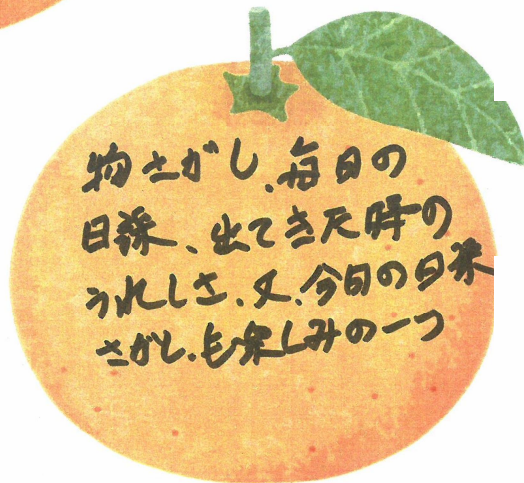 物さがし、毎日の
日課、出てきた時の
うれしさ、又、今日の日課
さがし、も楽しみの一つ